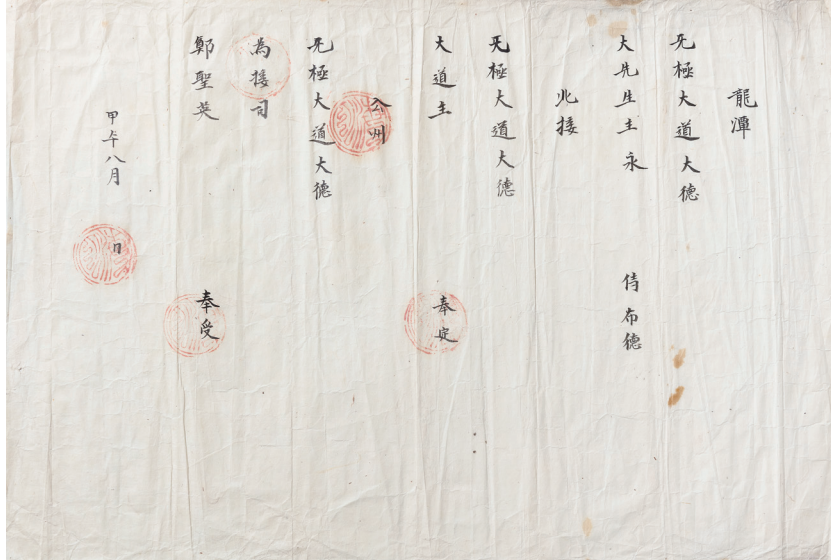 龍潭
无極大道大德
大先生主永 侍布德
北接
无極大道大德
大道主 奉定
公州
无極大道大德
為接司
鄭聖英 奉受
甲午八月 日